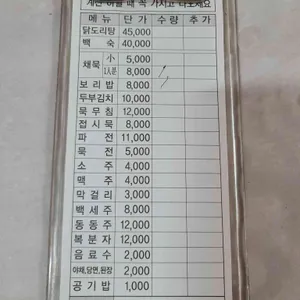 계산 하실 때 꼭 가지고 나오세요
메뉴 단가 수량 추가
닭도리탕 45,000
백숙 40,000
채묵 小 5,000
1人분 8,000
보리밥 8,000
두부김치 10,000
묵무침 12,000
접시묵 8,000
파전 11,000
묵전 5,000
소주 4,000
맥주 4,000
막걸리 3,000
백세주 8,000
동동주 12,000
복분자 12,000
음료수 2,000
야채,당면,된장 2,000
공기밥 1,000